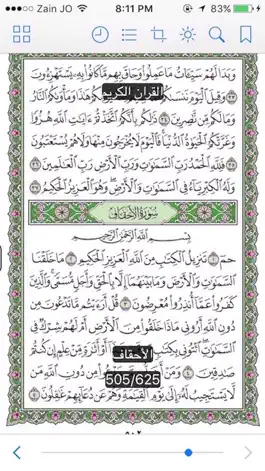 Zain JO 8:11 PM 83%
وَبَدَا لَهُمْ سَيِّئَاتُ مَا عَمِلُوا وَحَاقَ بِهِم مَّا كَانُوا بِهِ يَسْتَهْزِءُونَ
٣٣ وَقِيلَ الْيَوْمَ نَنسَىٰكُمْ كُمْ هَٰذَا وَمَأْوَىٰكُمُ النَّارُ
القران الكريم
وَمَا لَكُم مِّن نَّٰصِرِينَ ٣٤ ذَٰلِكُم بِأَنَّكُمُ اتَّخَذْتُمْ ءَايَٰتِ اللَّهِ هُزُوًا
وَغَرَّتْكُمُ الْحَيَوٰةُ الدُّنْيَا فَالْيَوْمَ لَا يُخْرَجُونَ مِنْهَا وَلَا هُمْ يُسْتَعْتَبُونَ
٣٥ فَلِلَّهِ الْحَمْدُ رَبِّ السَّمَٰوَٰتِ وَرَبِّ الْأَرْضِ رَبِّ الْعَٰلَمِينَ ٣٦
وَلَهُ الْكِبْرِيَاءُ فِي السَّمَٰوَٰتِ وَالْأَرْضِ وَهُوَ الْعَزِيزُ الْحَكِيمُ ٣٧
سُورَةُ الْأَحْقَافِ
بِسْمِ اللَّهِ الرَّحْمَٰنِ الرَّحِيمِ
حمٓ ١ تَنزِيلُ الْكِتَٰبِ مِنَ اللَّهِ الْعَزِيزِ الْحَكِيمِ ٢ مَا خَلَقْنَا
السَّمَٰوَٰتِ وَالْأَرْضَ وَمَا بَيْنَهُمَا إِلَّا بِالْحَقِّ وَأَجَلٍ مُّسَمًّى وَالَّذِينَ
كَفَرُوا عَمَّا أُنذِرُوا مُعْرِضُونَ ٣ قُلْ أَرَءَيْتُم مَّا تَدْعُونَ مِن
دُونِ اللَّهِ أَرُونِي مَاذَا خَلَقُوا مِنَ الْأَرْضِ أَمْ لَهُمْ شِرْكٌ فِي
السَّمَٰوَٰتِ ائْتُونِي بِكِتَٰبٍ أَوْ أَثَٰرَةٍ مِّنْ عِلْمٍ إِن كُنتُمْ
الأحقاف
صَٰدِقِينَ ٤ وَمَنْ أَضَلُّ مِن دُونِ اللَّهِ مَن
505/625
لَّا يَسْتَجِيبُ لَهُ إِلَىٰ يَوْمِ الْقِيَٰمَةِ وَهُمْ عَن دُعَائِهِمْ غَٰفِلُونَ ٥
٥٠٢